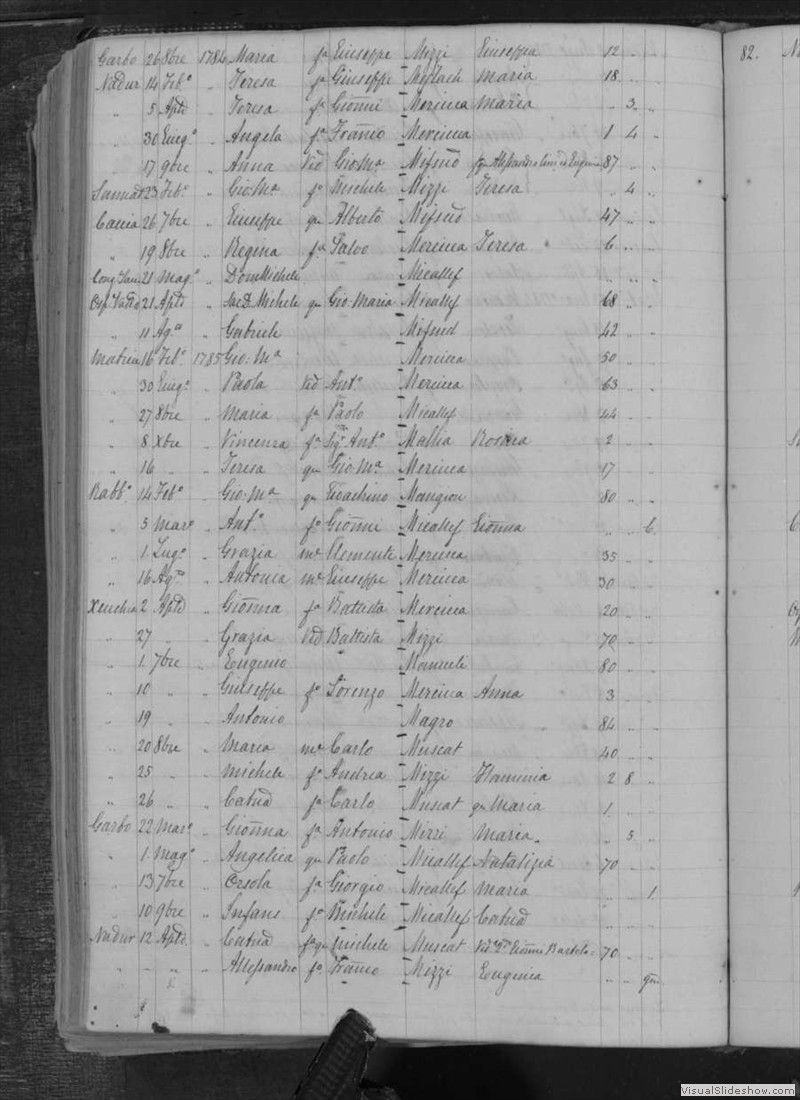 Garbo 26 8bre 1784 Maria fa Giuseppe Mizzi Giuseppa 12 82. N
Nadur 14 Feb.o Teresa fa Giuseppe Maria 18
5 Aple Teresa fa Gionni Mercieca Maria 3
30 Giug.o Angela fa Franco Mercieca 1 4
17 9bre Anna Ved Gio Ma Mifsud 87
Sannat 23 Feb.o Gio Ma fo Michele Mizzi Teresa 4
Caccia 26 7bre Giuseppe qm Alberto Mifsud 47
19 8bre Regina fa Salvo Mercieca Teresa 6
21 Mag.o Dom Michele Micallef
21 Aple Sacd. Michele qm Gio Maria Micallef 68
11 Ag.o Gabriele Mifsud 42
Matrice 16 Feb.o 1785 Gio: Ma Mercieca 50
30 Giug.o Paola Ved Ant.o Mercieca 63
27 8bre Maria fa Paolo Micallef 44
8 Xbre Vincenza fa Sigr Ant.o Mallia Rosina 2
16 Teresa qm Gio: Ma Mercieca 17
Rabb.o 14 Feb.o Gio: Ma qm Giachino Mangion 80
3 Mar.o Ant.o fo Gionni Micallef Gionna 6
1 Lug.o Grazia me Clemente Mercieca 35
16 Ag.o Antonia me Giuseppe Mercieca 30
Xeuchia 2 Aple Gionna fa Battista Mercieca 20
27 Grazia Ved Battista Mizzi 70
1 7bre Eugenio Manuele 80
10 Giuseppe fo Lorenzo Mercieca Anna 3
19 Antonio Magro 84
20 8bre Maria me Carlo Muscat 40
25 Michele fo Andrea Mizzi Flaminia 2 8
26 Catnd fa Carlo Muscat qm Maria 1
Garbo 22 Mar.o Gionna fa Antonio Mizzi Maria 5
1 Mag.o Angelica qm Paolo Micallef Natalizia 70
13 7bre Orsola fa Giorgio Micallef Maria 1
10 9bre Infans fo Michele Micallef Catnd
Nadur 12 Aple Catnd fa qm Michele Muscat Ved Gionni Bartolo 70
Alessandro fo Franco Mizzi Eugenia gni
VisualSlideshow.com